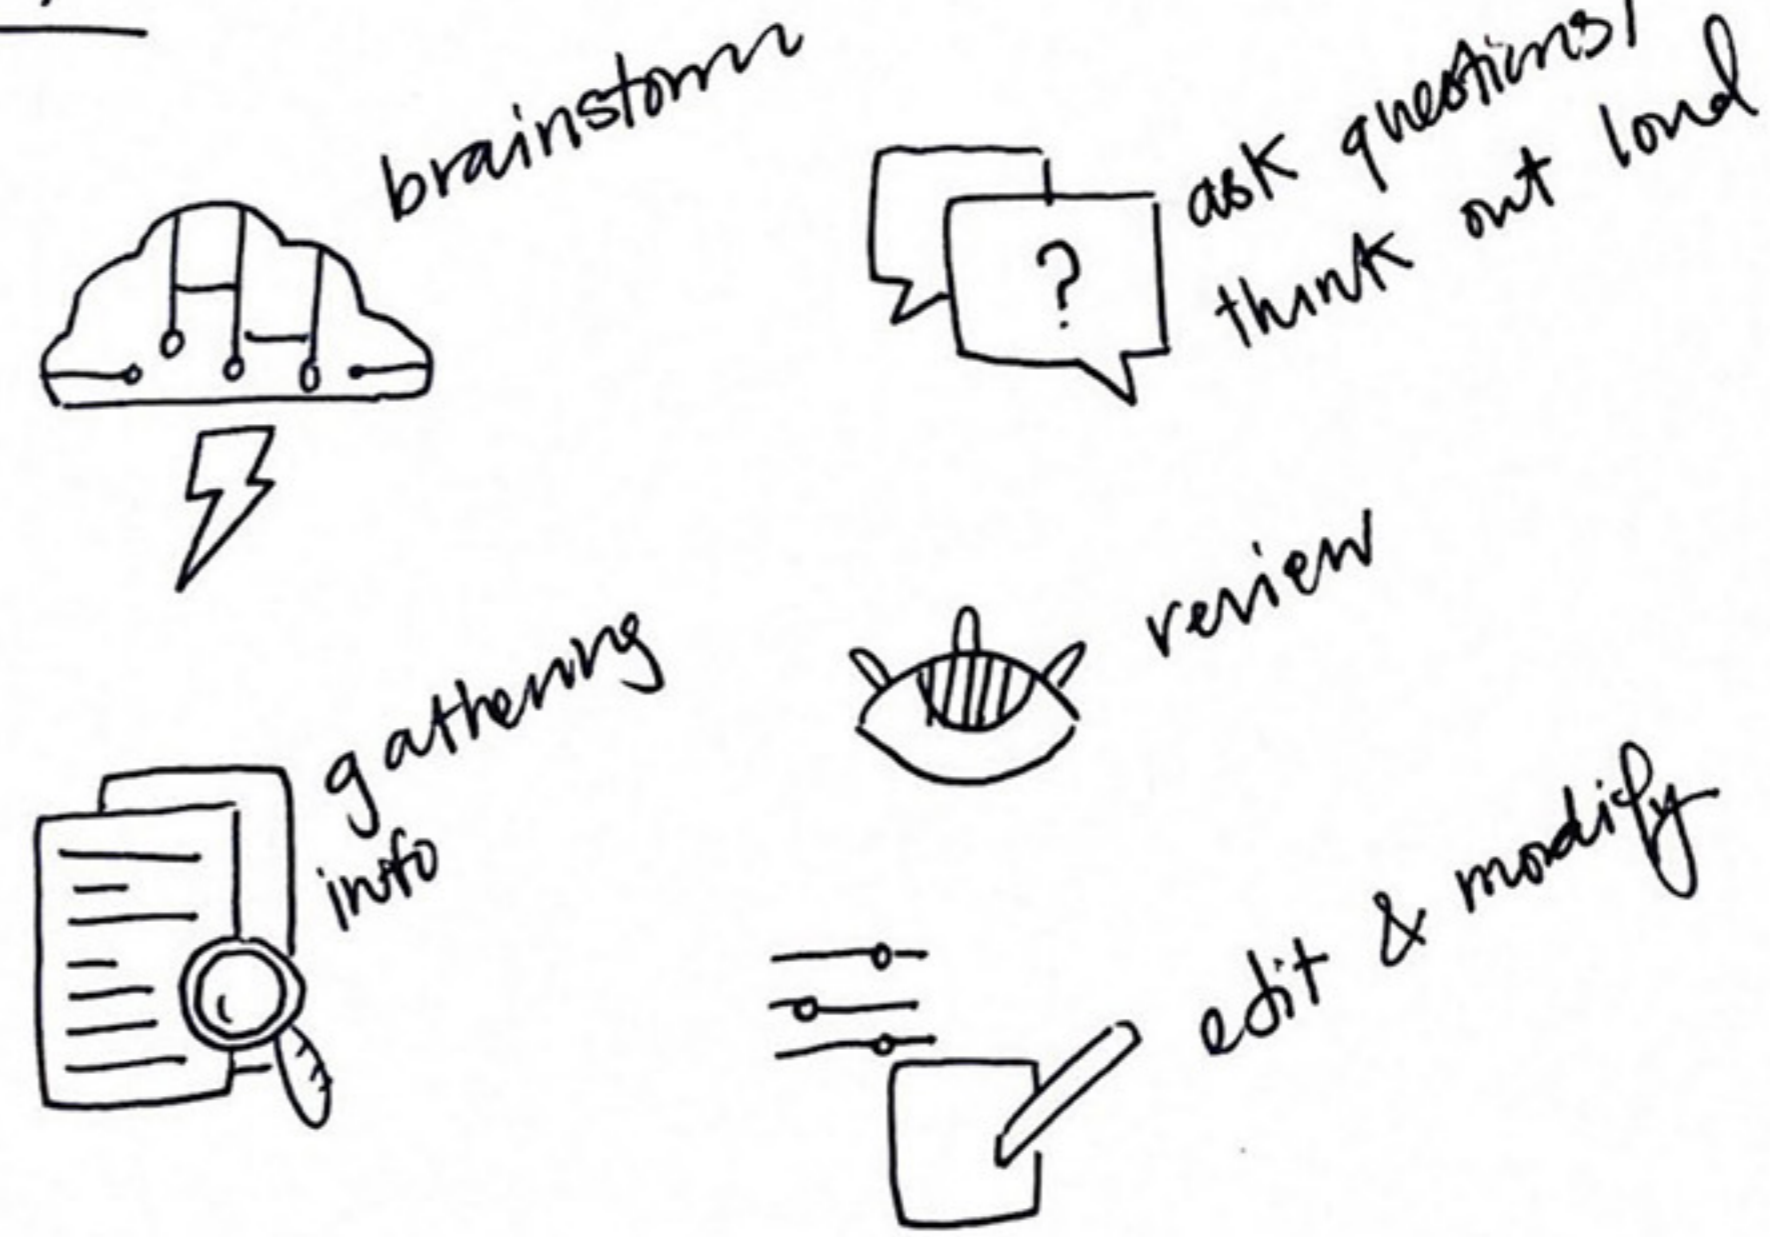 brainstorm
ask questions/
think out loud
?
gathering
info
review
edit & modify